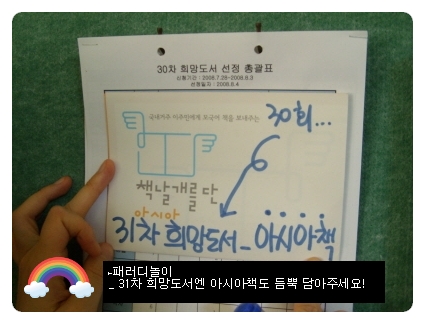 30차 희망도서 선정 총괄표
신청기간 : 2008.7.28~2008.8.3
선정일자 : 2008.8.4
30회...
국내거주 이주민에게 모국어 책을 보내주는
책날개를 단
아시아
31차 희망도서_아시아책
패러디놀이
_ 31차 희망도서엔 아시아책도 듬뿍 담아주세요!